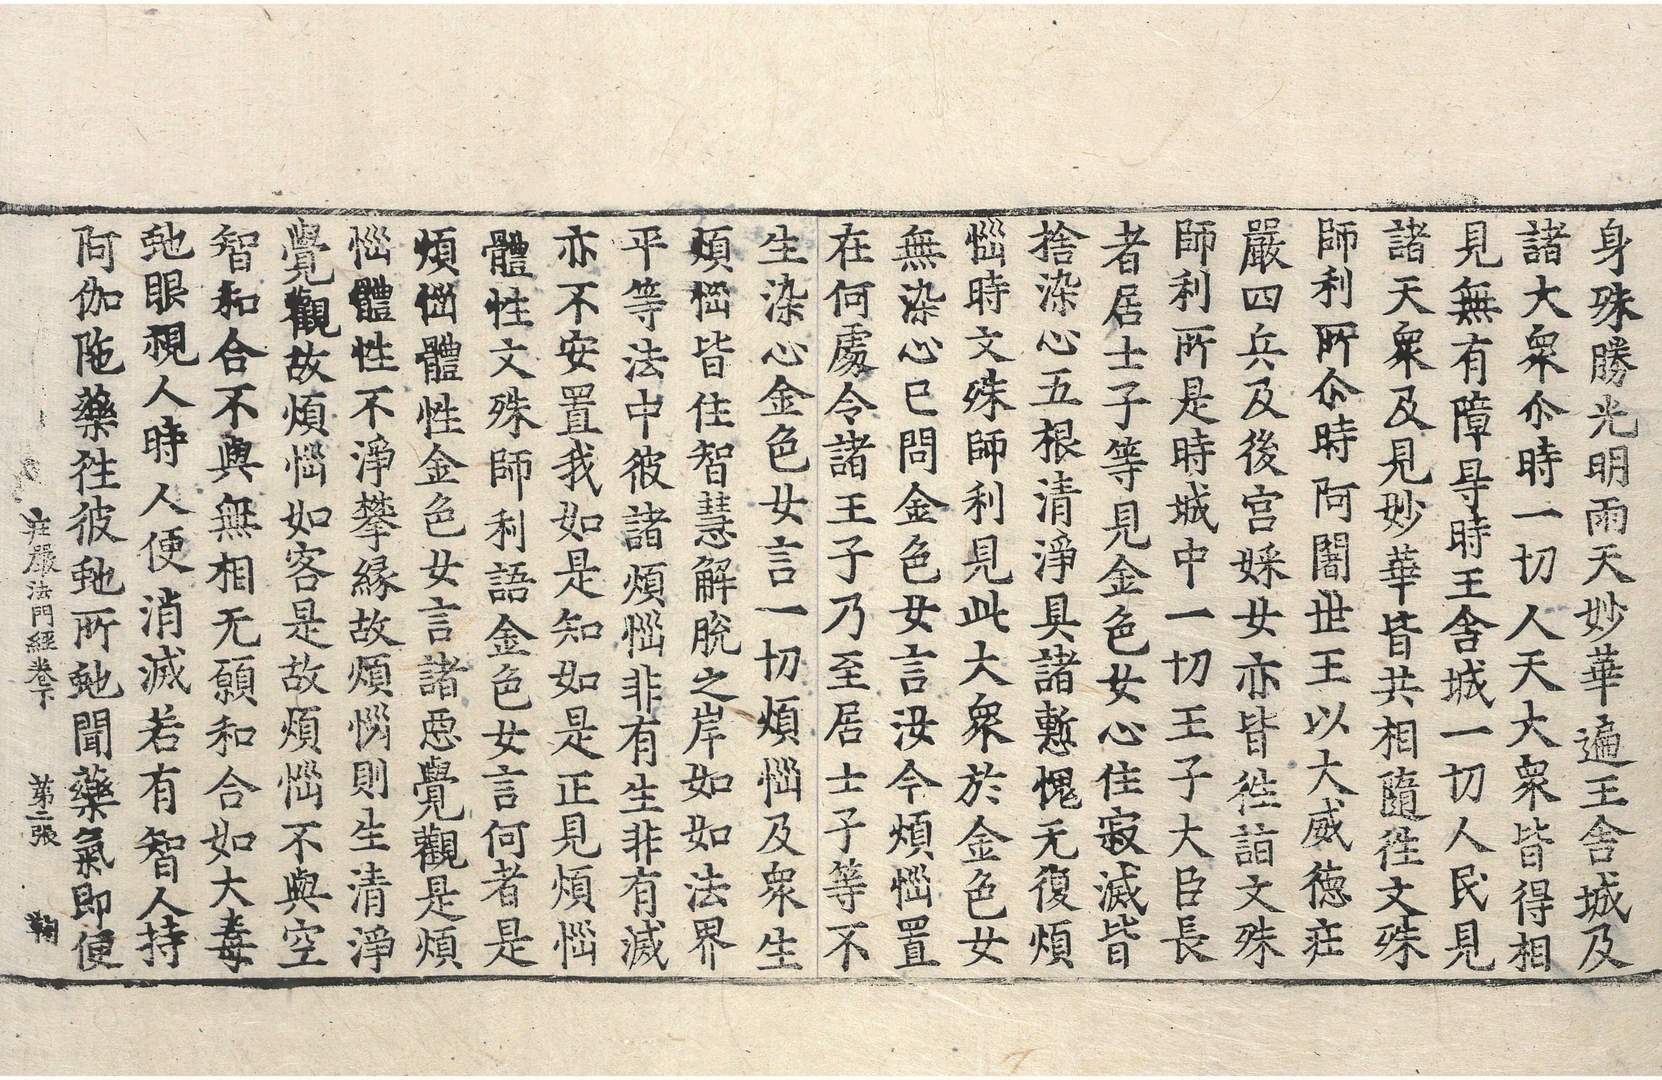 身殊勝光明雨天妙華遍王舍城及
諸大衆尒時一切人天大衆皆得相
見無有障㝵時王舍城一切人民見
諸天衆及見妙華皆共相隨徃文殊
師利所尒時阿闍世王以大威德庄
嚴四兵及後宮婇女亦皆徃詣文殊
師利所是時城中一切王子大臣長
者居士子等見金色女心住寂滅皆
捨染心五根清淨具諸慙愧无復煩
惱時文殊師利見此大衆於金色女
無染心已問金色女言汝今煩惱置
在何處令諸王子乃至居士子等不
生染心金色女言一切煩惱及衆生
煩惱皆住智慧解脫之岸如如法界
平等法中彼諸煩惱非有生非有滅
亦不安置我如是知如是正見煩惱
體性文殊師利語金色女言何者是
煩惱體性金色女言諸惡覺觀是煩
惱體性不淨攀緣故煩惱則生清淨
覺觀故煩惱如客是故煩惱不與空
智和合不與無相无願和合如大毒
虵眼視人時人便消滅若有智人持
阿伽陁藥徃彼虵所虵聞藥氣即便
庄嚴法門經卷下 第二張 鞠